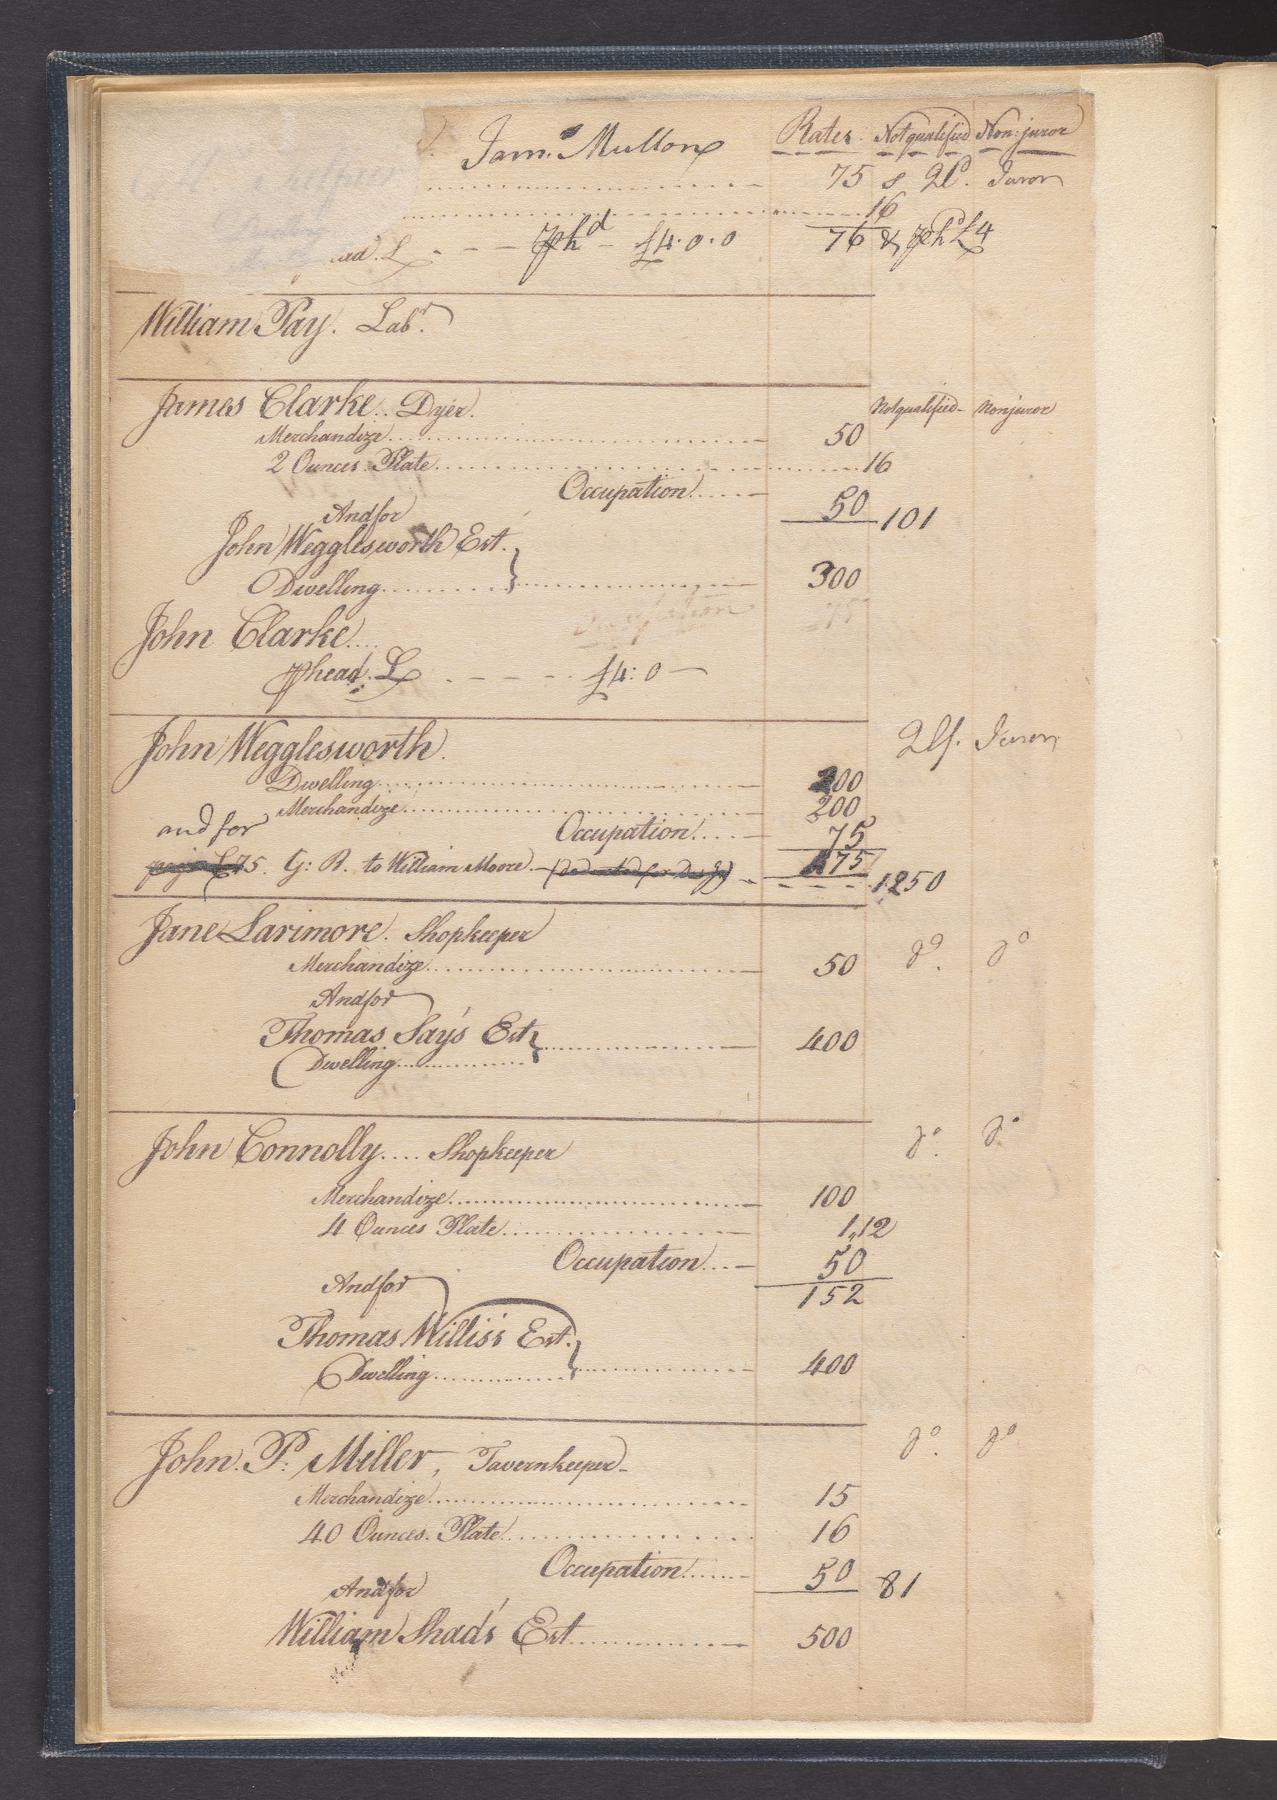 Jam.s Mullon Rates. Notqualified Non:juror
75 & Qld. Juror
16
ad. L - - - - ⅌ hd - £4.0.0 76 & ⅌ hd £4
William Pay. Labr.
James Clarke.. Dyer. Notqualified- Nonjuror
Merchandize 50
2 Ounces Plate 16
Occupation 50 101
Andfor
John Wegglesworth Est.
Dwelling 300
Occupation 75
John Clarke
⅌ head. L - - - - £4:0 —
John Wegglesworth. Qlf. Juror
Dwelling 200
Merchandize 200
and for Occupation 75
£75. G: R. to William Moore 175
1250
Jane Larimore. Shopkeeper do. do
Merchandize 50
Andfor
Thomas Say's Est
Dwelling 400
John Connolly.... Shopkeeper do. do
Merchandize 100
4 Ounces Plate 1,,12
Occupation 50
Andfor 152
Thomas Willis's Est.
Dwelling 400
John. P. Miller, Tavernkeeper- do. do
Merchandize 15
40 Ounces. Plate 16
Occupation 50 81
Andfor
William Shad's Est 500